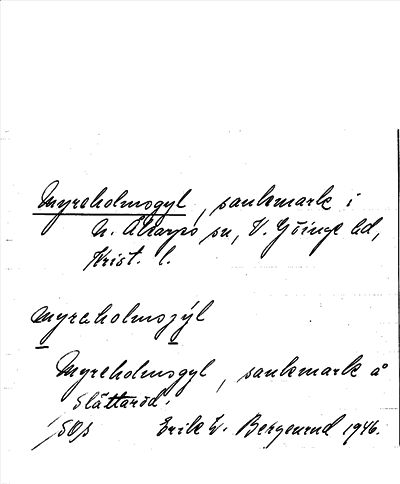 Myreholmsgyl, sankmark i
N. Åkarps sn, V. Göinge hd,
Krist. l.
myraholmsjýl
Myreholmsgyl, sankmark å
Slättaröd.
Erik W. Bergenrud 1946.